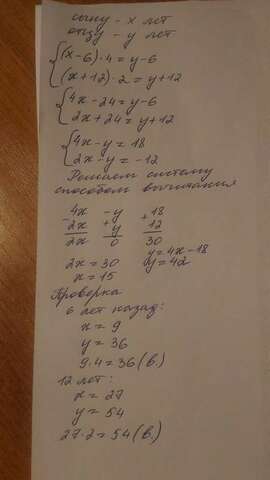 сыну - x лет
отцу - y лет
(x-6)·4=y-6
(x+12)·2=y+12
4x-24=y-6
2x+24=y+12
4x-y=18
2x-y=-12
Решаем систему
способом вычитания
-4x -y +18
2x +y 12
2x 0 30
2x=30 y=4x-18
x=15 y=42
Проверка
6 лет назад:
x=9
y=36
9·4=36(в.)
12 лет:
x=27
y=54
27·2=54(в.)